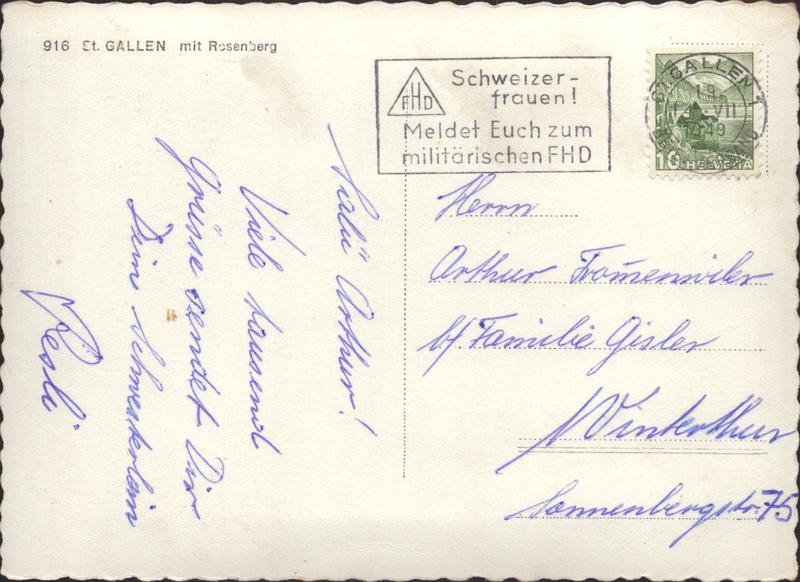 916 St. GALLEN mit Rosenberg
FHD
Schweizer-
frauen!
Meldet Euch zum
militärischen FHD
ST. GALLEN 1
19.
VII
49
10 HELVETIA
Salü Arthur!
Viele tausend
Grüsse sendet Dir
Deine Schwesterlein
Resli
Herrn
Arthur Frauenwiler
b/ Familie Gisler
Winterthur
Sonnenbergstr. 75